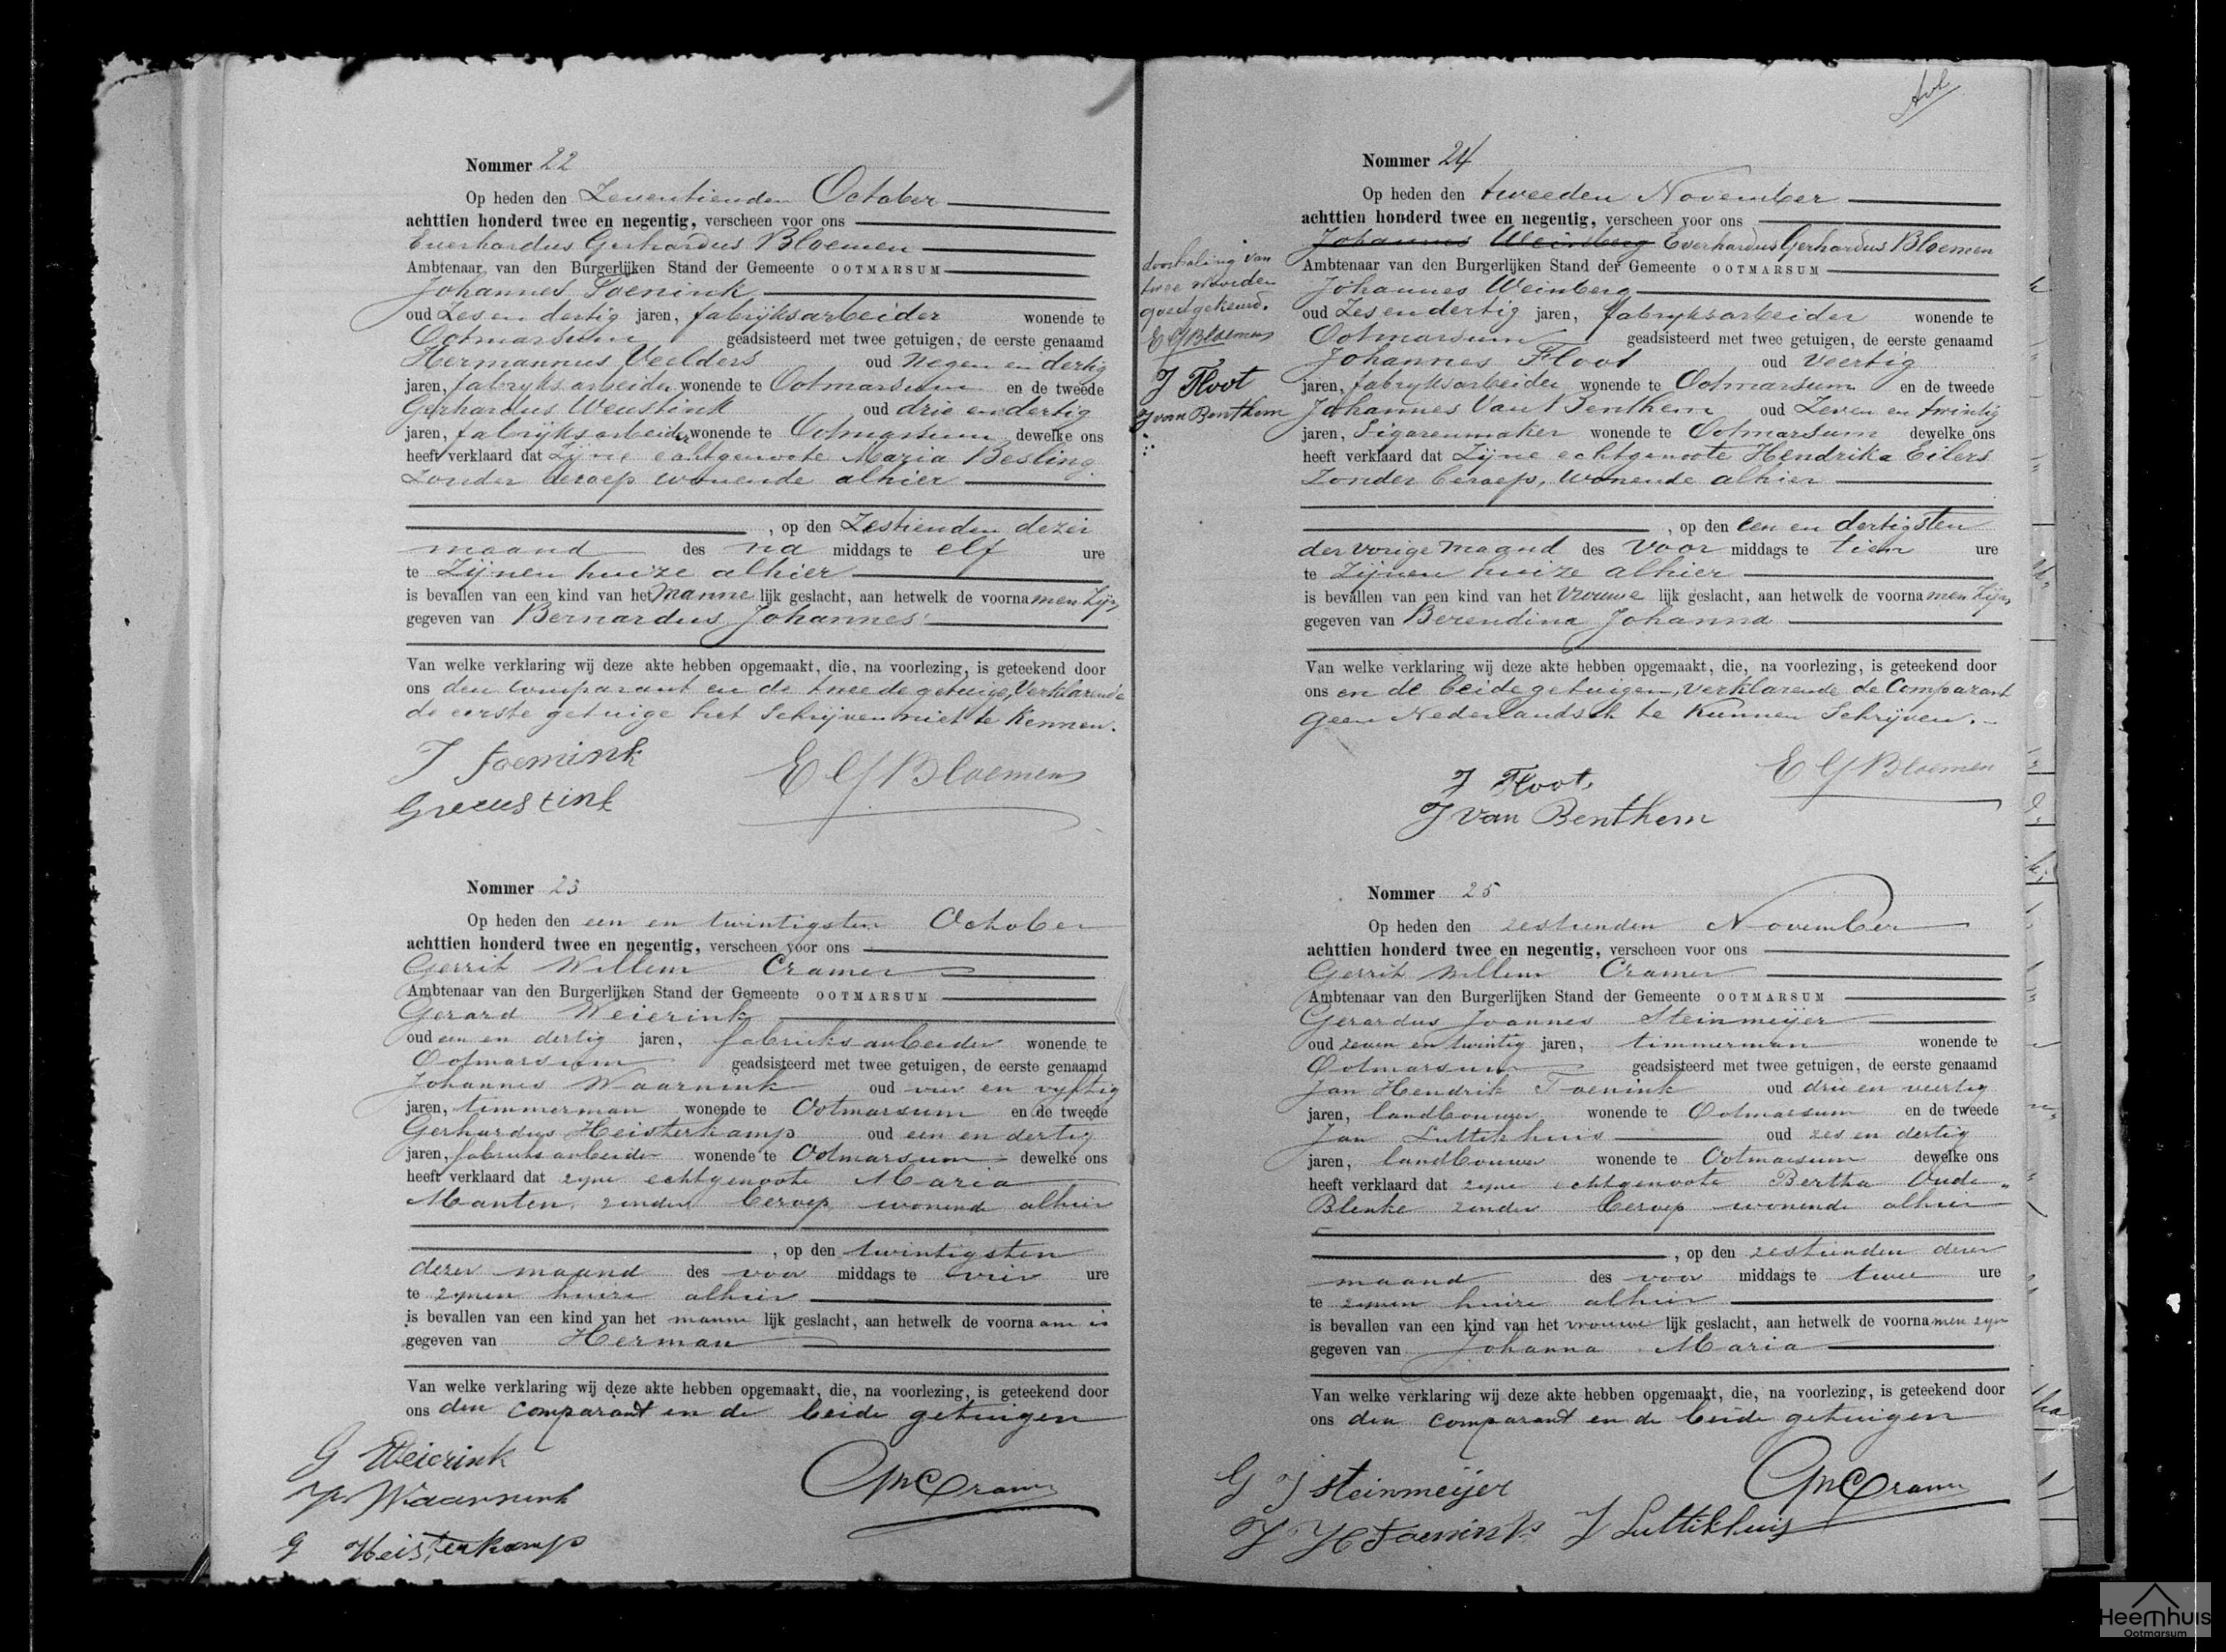 Nommer 22
Op heden den Zeventienden October
achttien honderd twee en negentig, verscheen voor ons
Everhardus Gerhardus Bloemen
Ambtenaar van den Burgerlijken Stand der Gemeente OOTMARSUM
Johannes Toenink
oud Zes en dertig jaren, fabrijksarbeider wonende te
Ootmarsum geadsisteerd met twee getuigen, de eerste genaamd
Hermannus Velders oud negen en dertig
jaren, fabryksarbeider wonende te Ootmarsum en de tweede
Gerhardus Weustink oud drie en dertig
jaren, fabrijksarbeider wonende te Ootmarsum dewelke ons
heeft verklaard dat Zijne echtgenoote Maria Besling
Zonder beroep wonende alhier
, op den Zestienden dezer
maand des na middags te elf ure
te Zijnen huize alhier
is bevallen van een kind van het manne lijk geslacht, aan hetwelk de voorna men Zijn
gegeven van Bernardus Johannes
Van welke verklaring wij deze akte hebben opgemaakt, die, na voorlezing, is geteekend door
ons den comparant en de tweede getuige, Verklarende
de eerste getuige het Schrijven niet te Kennen.
J Toenink
EGBloemen
GWeustink
Nommer 23
Op heden den een en twintigsten October
achttien honderd twee en negentig, verscheen voor ons
Gerrit Willem Cramer
Ambtenaar van den Burgerlijken Stand der Gemeente OOTMARSUM
Gerard Weierink
oud een en dertig jaren, fabrieksarbeider wonende te
Ootmarsum geadsisteerd met twee getuigen, de eerste genaamd
Johannes Waarnink oud vier en vyftig
jaren, timmerman wonende te Ootmarsum en de tweede
Gerhardus Heisterkamp oud een en dertig
jaren, fabrieksarbeider wonende te Ootmarsum dewelke ons
heeft verklaard dat zyne echtgenoote Maria
Manten, zonder beroep wonende alhier
, op den twintigsten
dezer maand des voor middags te vier ure
te zynen huize alhier
is bevallen van een kind van het manne lijk geslacht, aan hetwelk de voorna am is
gegeven van Herman
Van welke verklaring wij deze akte hebben opgemaakt, die, na voorlezing, is geteekend door
ons den comparant en de beide getuigen
G Weierink
Waarnink
GWCramer
G Heisterkamp
Nommer 24
Op heden den tweeden November
achttien honderd twee en negentig, verscheen voor ons
Johannes Weinberg Everhardus Gerhardus Bloemen
Ambtenaar van den Burgerlijken Stand der Gemeente OOTMARSUM
Johannes Weinberg
oud Zes en dertig jaren, fabryksarbeider wonende te
Ootmarsum geadsisteerd met twee getuigen, de eerste genaamd
Johannes Floot oud Veertig
jaren, fabryksarbeider wonende te Ootmarsum en de tweede
Johannes Van Benthem oud Zeven en twintig
jaren, Sigarenmaker wonende te Ootmarsum dewelke ons
heeft verklaard dat Zijne echtgenoote Hendrika Eilers
Zonder beroep, wonende alhier
, op den een en dertigsten
der vorige maand des Voor middags te tien ure
te Zijnen huize alhier
is bevallen van een kind van het Vrouwe lijk geslacht, aan hetwelk de voorna men Zijn
gegeven van Berendina Johanna
Van welke verklaring wij deze akte hebben opgemaakt, die, na voorlezing, is geteekend door
ons en de beide getuigen, verklarende de Comparant
geen Nederlandsch te Kunnen Schrijven.
EGBloemen
J Floot
J van Benthem
doorhaling van
twee woorden
goedgekeurd.
EGBloemen
J Floot
J van Benthem
Nommer 25
Op heden den zestienden November
achttien honderd twee en negentig, verscheen voor ons
Gerrit Willem Cramer
Ambtenaar van den Burgerlijken Stand der Gemeente OOTMARSUM
Gerardus Joannes Steinmeijer
oud zeven en twintig jaren, timmerman wonende te
Ootmarsum geadsisteerd met twee getuigen, de eerste genaamd
Jan Hendrik Toenink oud drie en veertig
jaren, landbouwer wonende te Ootmarsum en de tweede
Jan Luttikhuis oud zes en dertig
jaren, landbouwer wonende te Ootmarsum dewelke ons
heeft verklaard dat zyne echtgenoote Bertha Oude
Blenke zonder beroep wonende alhier
, op den zestienden dezer
maand des voor middags te twee ure
te zynen huize alhier
is bevallen van een kind van het vrouwe lijk geslacht, aan hetwelk de voorna men zyn
gegeven van Johanna Maria
Van welke verklaring wij deze akte hebben opgemaakt, die, na voorlezing, is geteekend door
ons den comparant en de beide getuigen
G J Steinmeijer
GWCramer
J H Toenink J Luttikhuis
Heemhuis
Ootmarsum